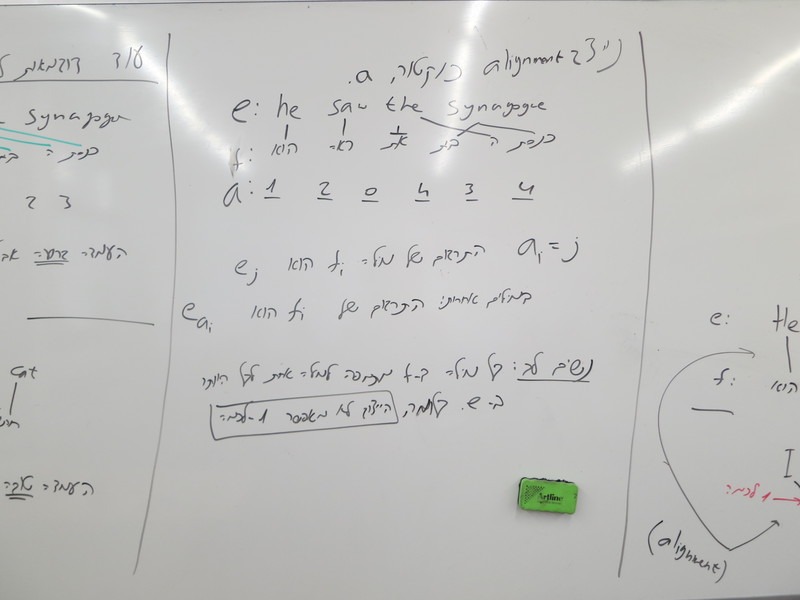 עוד דוגמאות
Synagogue
2 3
העמדה גרועה
cat
העמדה טובה
נייצג alignment כוקטור, a.
e: he saw the Synagogue
f: הוא ראה את בית ה כנסת
a: 1 2 0 4 3 4
a_i = j התרגום של מילה f_i הוא e_j
במילים אחרות: התרגום של f_i הוא e_{a_i}
נשים לב: כל מילה ב-f מתמפה למילה אחת לכל היותר
ב-e. כלומר, הייצוג לא מאפשר 1-לכמה
Artline
e: He
f: הוא
I
1 לכמה
(alignment)